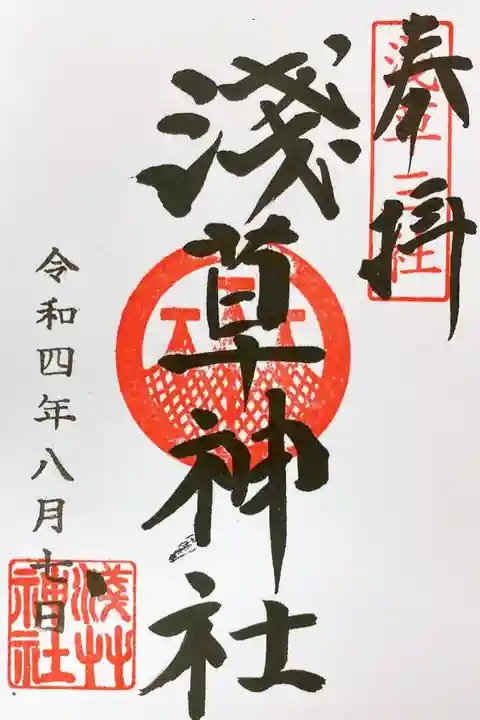 奉拝
浅草三社
淺草神社
令和四年八月七日
淺艸
神社